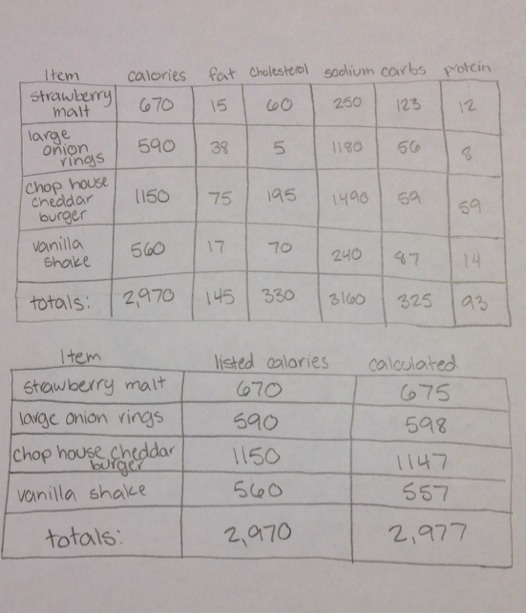 Item calories fat cholesterol sodium carbs protein
strawberry malt 670 15 60 250 123 12
large onion rings 590 38 5 1180 56 8
chop house cheddar burger 1150 75 195 1490 59 59
vanilla shake 560 17 70 240 87 14
totals: 2,970 145 330 3160 325 93
Item listed calories calculated
strawberry malt 670 675
large onion rings 590 598
chop house cheddar burger 1150 1147
vanilla shake 560 557
totals: 2,970 2,977